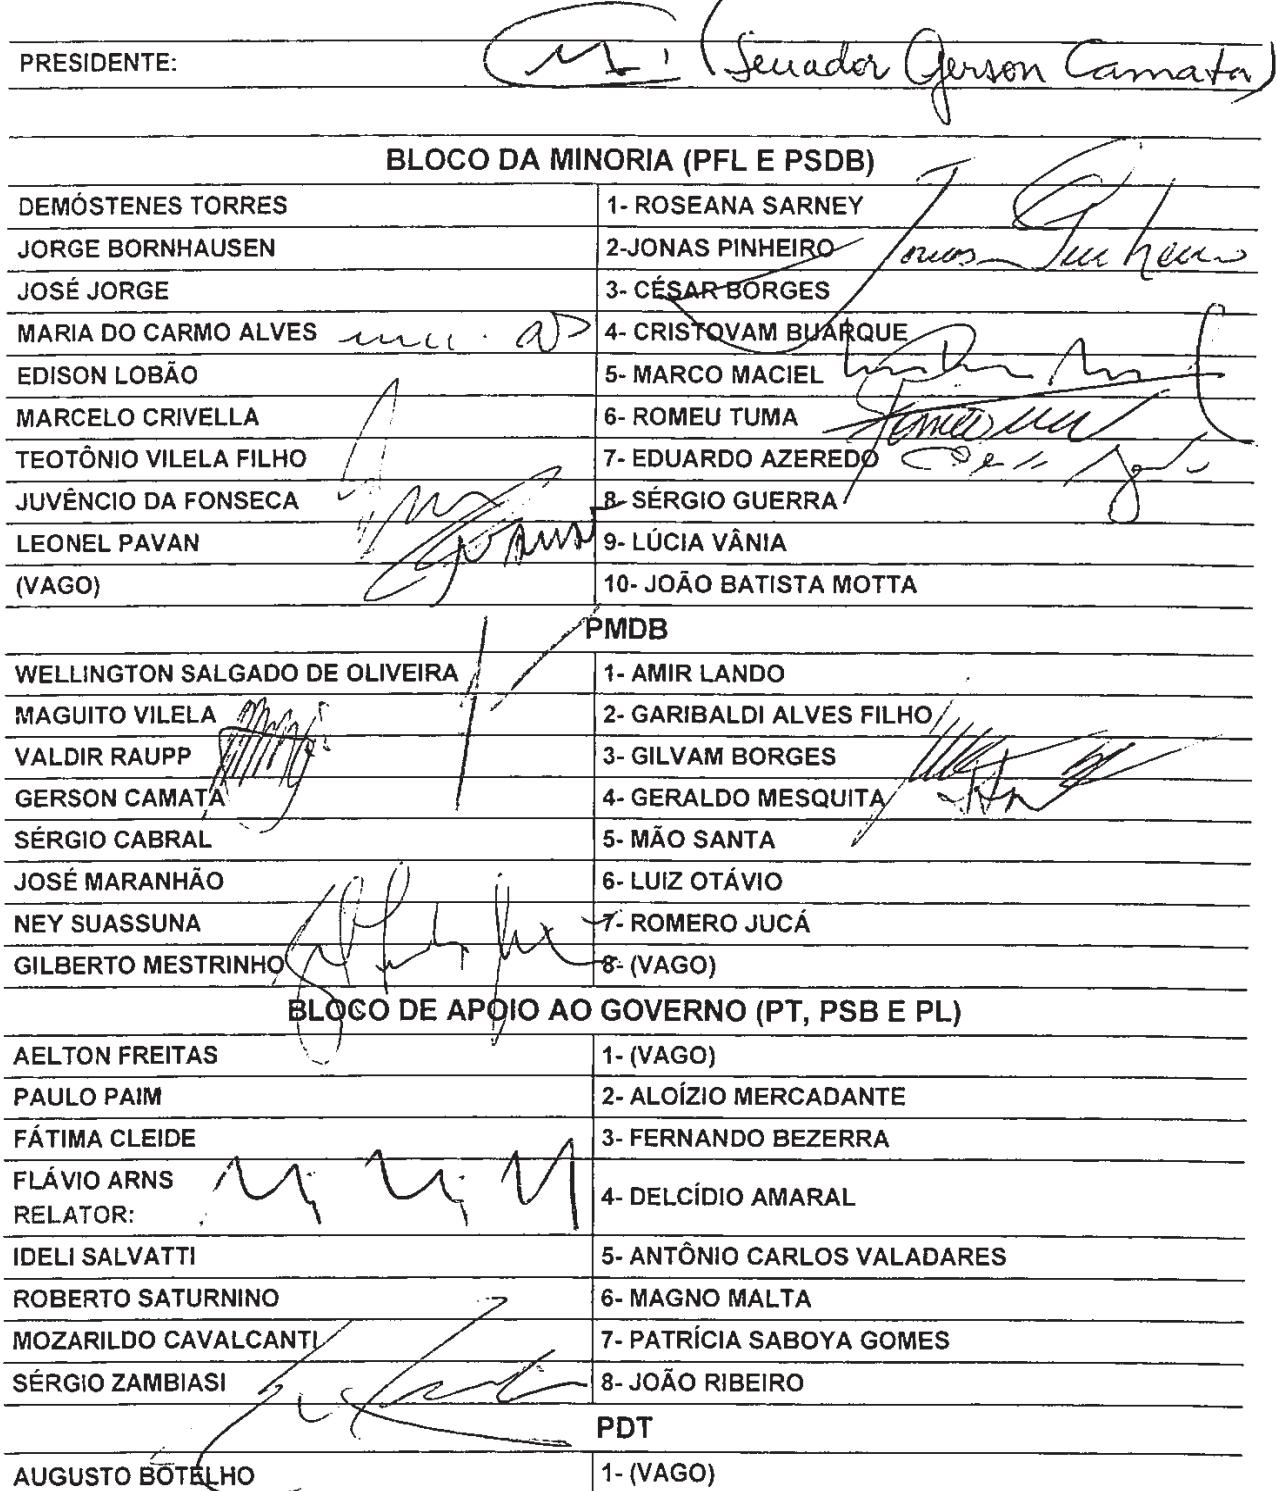 PRESIDENTE: (Senador Gerson Camata)
BLOCO DA MINORIA (PFL E PSDB)
DEMÓSTENES TORRES 1- ROSEANA SARNEY
JORGE BORNHAUSEN 2-JONAS PINHEIRO Jonas Pinheiro
JOSÉ JORGE 3- CÉSAR BORGES
MARIA DO CARMO ALVES 4- CRISTOVAM BUARQUE
EDISON LOBÃO 5- MARCO MACIEL
MARCELO CRIVELLA 6- ROMEU TUMA
TEOTÔNIO VILELA FILHO 7- EDUARDO AZEREDO
JUVÊNCIO DA FONSECA 8- SÉRGIO GUERRA
LEONEL PAVAN 9- LÚCIA VÂNIA
(VAGO) 10- JOÃO BATISTA MOTTA
PMDB
WELLINGTON SALGADO DE OLIVEIRA 1- AMIR LANDO
MAGUITO VILELA 2- GARIBALDI ALVES FILHO
VALDIR RAUPP 3- GILVAM BORGES
GERSON CAMATA 4- GERALDO MESQUITA
SÉRGIO CABRAL 5- MÃO SANTA
JOSÉ MARANHÃO 6- LUIZ OTÁVIO
NEY SUASSUNA 7- ROMERO JUCÁ
GILBERTO MESTRINHO 8- (VAGO)
BLOCO DE APOIO AO GOVERNO (PT, PSB E PL)
AELTON FREITAS 1- (VAGO)
PAULO PAIM 2- ALOÍZIO MERCADANTE
FÁTIMA CLEIDE 3- FERNANDO BEZERRA
FLÁVIO ARNS
RELATOR: 4- DELCÍDIO AMARAL
IDELI SALVATTI 5- ANTÔNIO CARLOS VALADARES
ROBERTO SATURNINO 6- MAGNO MALTA
MOZARILDO CAVALCANTI 7- PATRÍCIA SABOYA GOMES
SÉRGIO ZAMBIASI 8- JOÃO RIBEIRO
PDT
AUGUSTO BOTELHO 1- (VAGO)